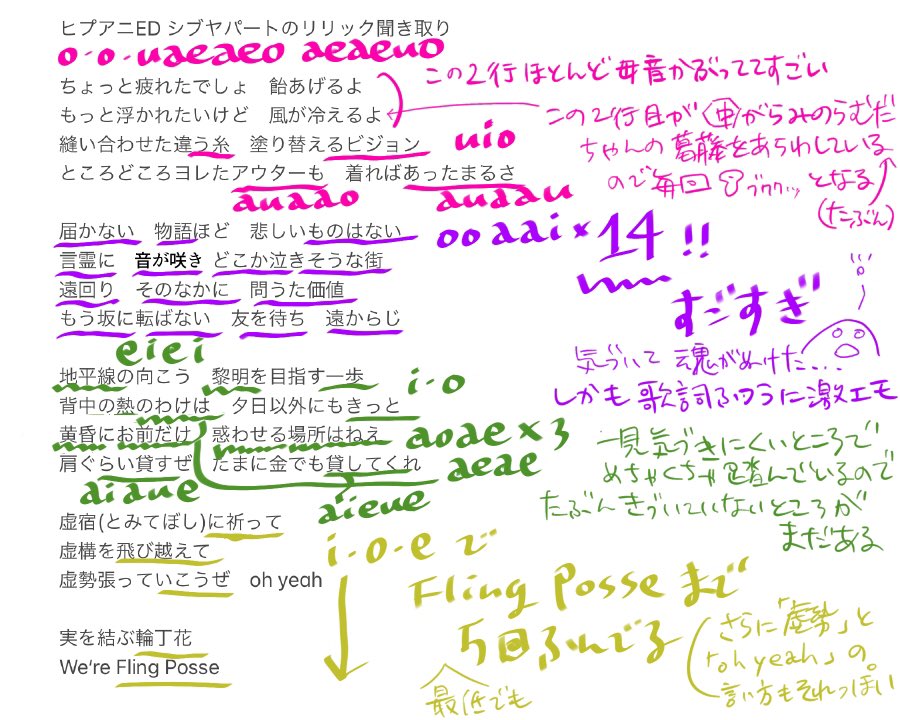 ヒプアニED シブヤパートのリリック聞き取り
o-o-uaeaeo aeaeuo
ちょっと疲れたでしょ　飴あげるよ
この2行ほとんど母音かぶっててすごい
もっと浮かれたいけど　風が冷えるよ
この2行目が(虫)がらみのらむだ
縫い合わせた違う糸　塗り替えるビジョン
uio
ちゃんの葛藤をあらわしている
ところどころヨレたアウターも　着ればあったまるさ
ので毎回
となる
(たぶん)
auaao
auaau
届かない　物語ほど　悲しいものはない
ooaai×14!!
言霊に　音が咲き　どこか泣きそうな街
遠回り　そのなかに　問うた価値
すごすぎ
もう坂に転ばない　友を待ち　遠からじ
eiei
気づいて 魂がぬけた...
地平線の向こう　黎明を目指す一歩
i-o
しかも 歌詞ふつうに激エモ
背中の熱のわけは　夕日以外にもきっと
黄昏にお前だけ　惑わせる場所はねえ
aoae×3
一見気づきにくいところで
肩ぐらい貸すぜ　たまに金でも貸してくれ
aeae
めちゃくちゃ踏んでいるので
aiaue
aieue
たぶんきづいていないところが
まだある
虚宿(とみてぼし)に祈って
虚構を飛び越えて
i-o-eで
虚勢張っていこうぜ　oh yeah
Fling Posseまで
5回ふんでる
最低でも
さらに「虚勢」と
「oh yeah」の
言い方もそれっぽい
実を結ぶ輪丁花
We're Fling Posse